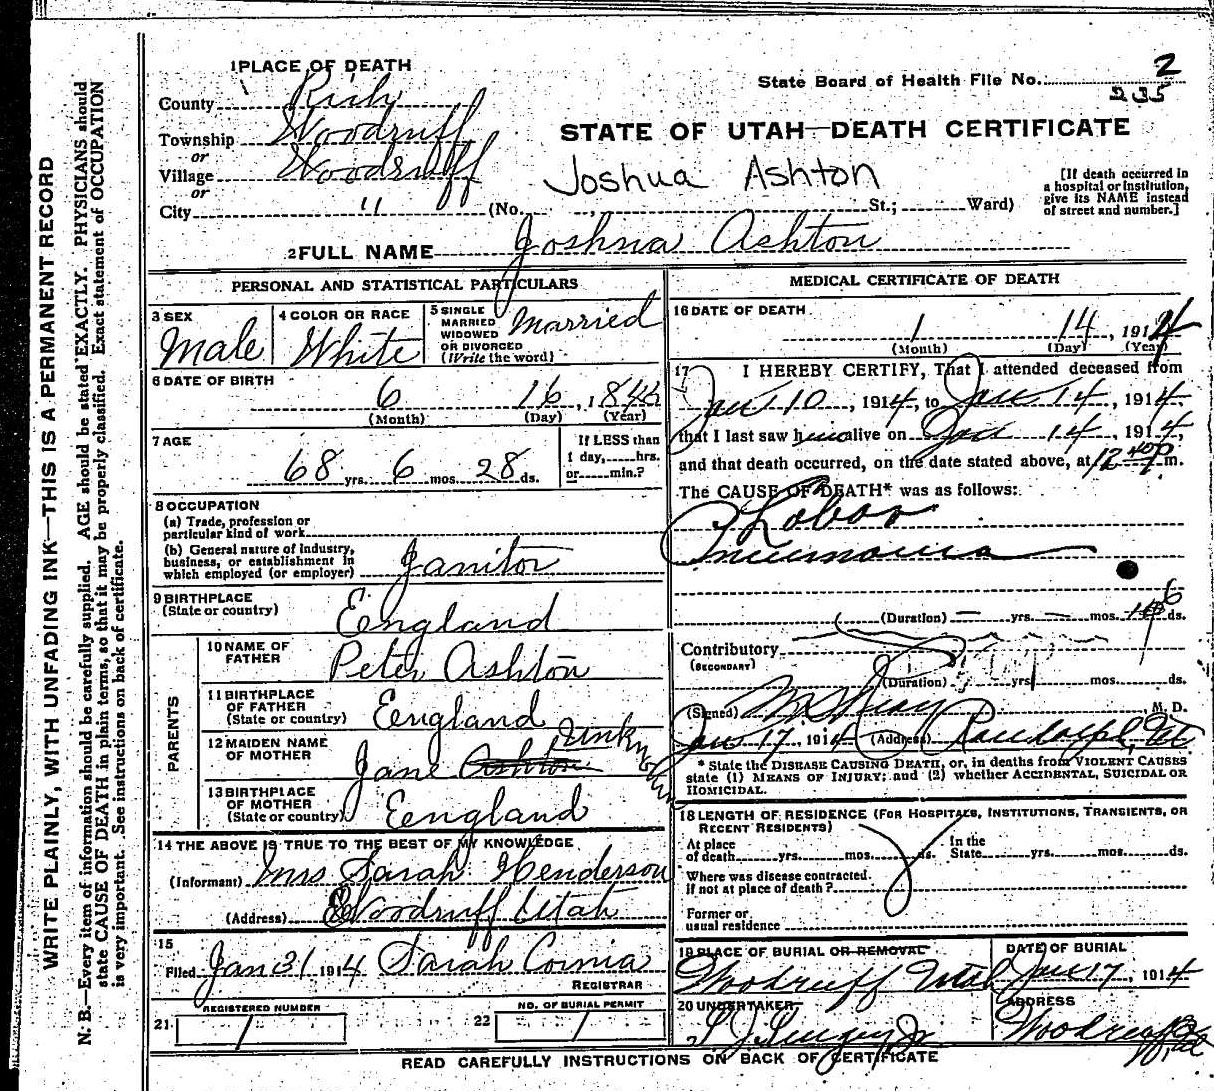 WRITE PLAINLY, WITH UNFADING INK—THIS IS A PERMANENT RECORD
N. B.—Every item of information should be carefully supplied. AGE should be stated EXACTLY. PHYSICIANS should
state CAUSE OF DEATH in plain terms, so that it may be properly classified. Exact statement of OCCUPATION
is very important. See instructions on back of certificate.
1 PLACE OF DEATH
County Rich
Township Woodruff
or
Village Woodruff
or
City "
State Board of Health File No. 2
235
STATE OF UTAH—DEATH CERTIFICATE
Joshua Ashton
(No. , St.; Ward)
[If death occurred in
a hospital or institution,
give its NAME instead
of street and number.]
2 FULL NAME Joshua Ashton
PERSONAL AND STATISTICAL PARTICULARS
3 SEX Male
4 COLOR OR RACE White
5 SINGLE
MARRIED
WIDOWED
OR DIVORCED
(Write the word) Married
6 DATE OF BIRTH
6 16, 184
(Month) (Day) (Year)
7 AGE
68 yrs. 6 mos. 28 ds.
If LESS than
1 day, hrs.
or min.?
8 OCCUPATION
(a) Trade, profession or
particular kind of work
(b) General nature of industry,
business, or establishment in
which employed (or employer) Janitor
9 BIRTHPLACE
(State or country) England
PARENTS
10 NAME OF
FATHER Peter Ashton
11 BIRTHPLACE
OF FATHER
(State or country) England
12 MAIDEN NAME
OF MOTHER Jane Ashton Unknown
13 BIRTHPLACE
OF MOTHER
(State or country) England
14 THE ABOVE IS TRUE TO THE BEST OF MY KNOWLEDGE
(Informant) Mrs Sarah Henderson
(Address) Woodruff Utah
15
Filed Jan 31 1914 Sarah Cornia
REGISTRAR
REGISTERED NUMBER
21 1
NO. OF BURIAL PERMIT
22 1
MEDICAL CERTIFICATE OF DEATH
16 DATE OF DEATH
1 14, 1914
(Month) (Day) (Year)
17 I HEREBY CERTIFY, That I attended deceased from
Jan 10, 1914, to Jan 14, 1914.
that I last saw him alive on Jan 14, 1914,
and that death occurred, on the date stated above, at 12 40 P m.
The CAUSE OF DEATH* was as follows:
Lobar
Pneumonia
(Duration) — yrs. — mos. 6 ds.
Contributory
(SECONDARY)
(Duration) yrs. mos. ds.
(Signed) , M. D.
Jan 17, 1914 (Address) Randolph, Ut
* State the DISEASE CAUSING DEATH, or, in deaths from VIOLENT CAUSES
state (1) MEANS OF INJURY; and (2) whether ACCIDENTAL, SUICIDAL OR
HOMICIDAL.
18 LENGTH OF RESIDENCE (FOR HOSPITALS, INSTITUTIONS, TRANSIENTS, OR
RECENT RESIDENTS)
At place
of death yrs. mos. ds.
In the
State yrs. mos. ds.
Where was disease contracted,
if not at place of death?
Former or
usual residence
19 PLACE OF BURIAL OR REMOVAL
Woodruff Utah
DATE OF BURIAL
Jan 17, 1914
20 UNDERTAKER
ADDRESS
Woodruff
READ CAREFULLY INSTRUCTIONS ON BACK OF CERTIFICATE